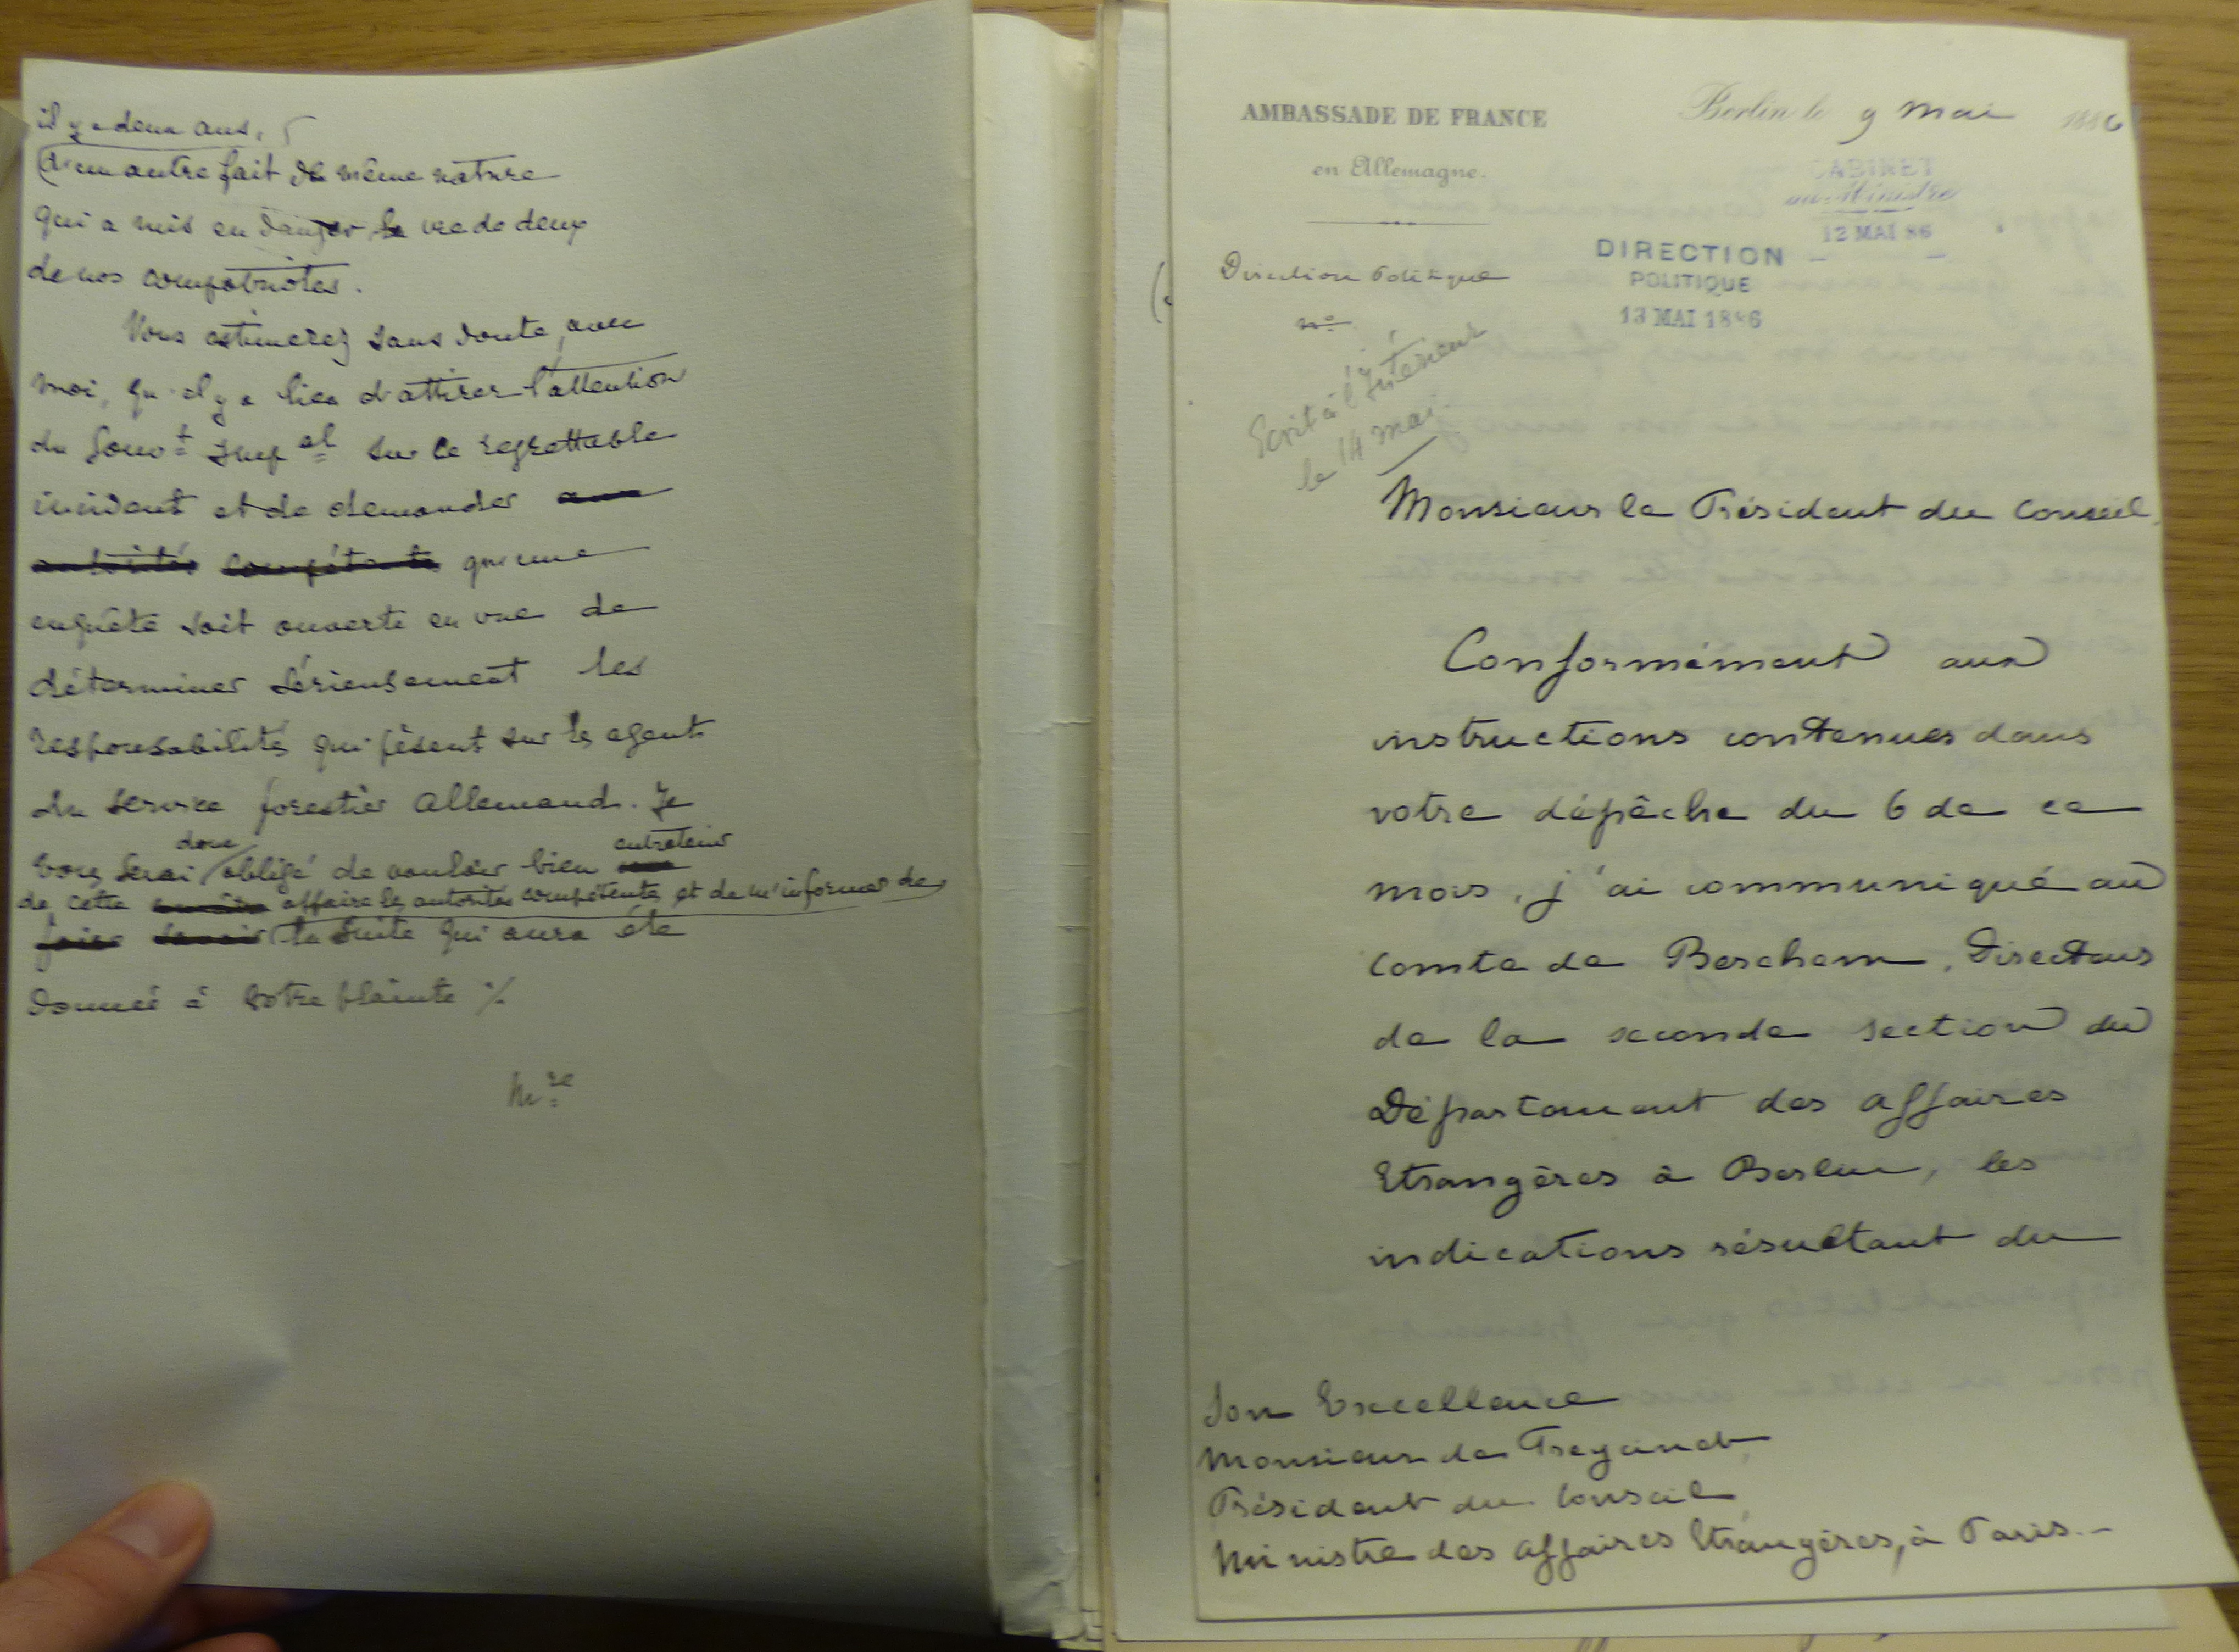 il y a deux ans,
d'un autre fait de même nature
qui a mis en danger la vie de deux
de nos compatriotes.
Vous estimerez sans doute, avec
moi, qu'il y a lieu d'attirer l'attention
du Gouv^t Imp^al sur ce regrettable
incident et de demander aux
autorités compétentes qu'une
enquête soit ouverte en vue de
déterminer sérieusement les
responsabilités qui pèsent sur les agents
du service forestier allemand. Je
vous serai donc obligé de vouloir bien entretenir
de cette affaire les autorités compétentes et de m'informer de
faire savoir la suite qui aura été
donnée à votre plainte ./.
AMBASSADE DE FRANCE
en Allemagne.
Berlin le 9 Mai 1886
CABINET
du Ministre
12 MAI 86
DIRECTION
POLITIQUE
13 MAI 1886
Direction Politique
n°
Ecrit à l'Intérieur
le 14 mai.
Monsieur le Président du Conseil,
Conformément aux
instructions contenues dans
votre dépêche du 6 de ce
mois, j'ai communiqué au
Comte de Berchem, Directeur
de la seconde section du
Département des Affaires
Etrangères à Berlin, les
indications résultant du
Son Excellence
Monsieur de Freycinet,
Président du Conseil,
Ministre des Affaires Etrangères, à Paris.-